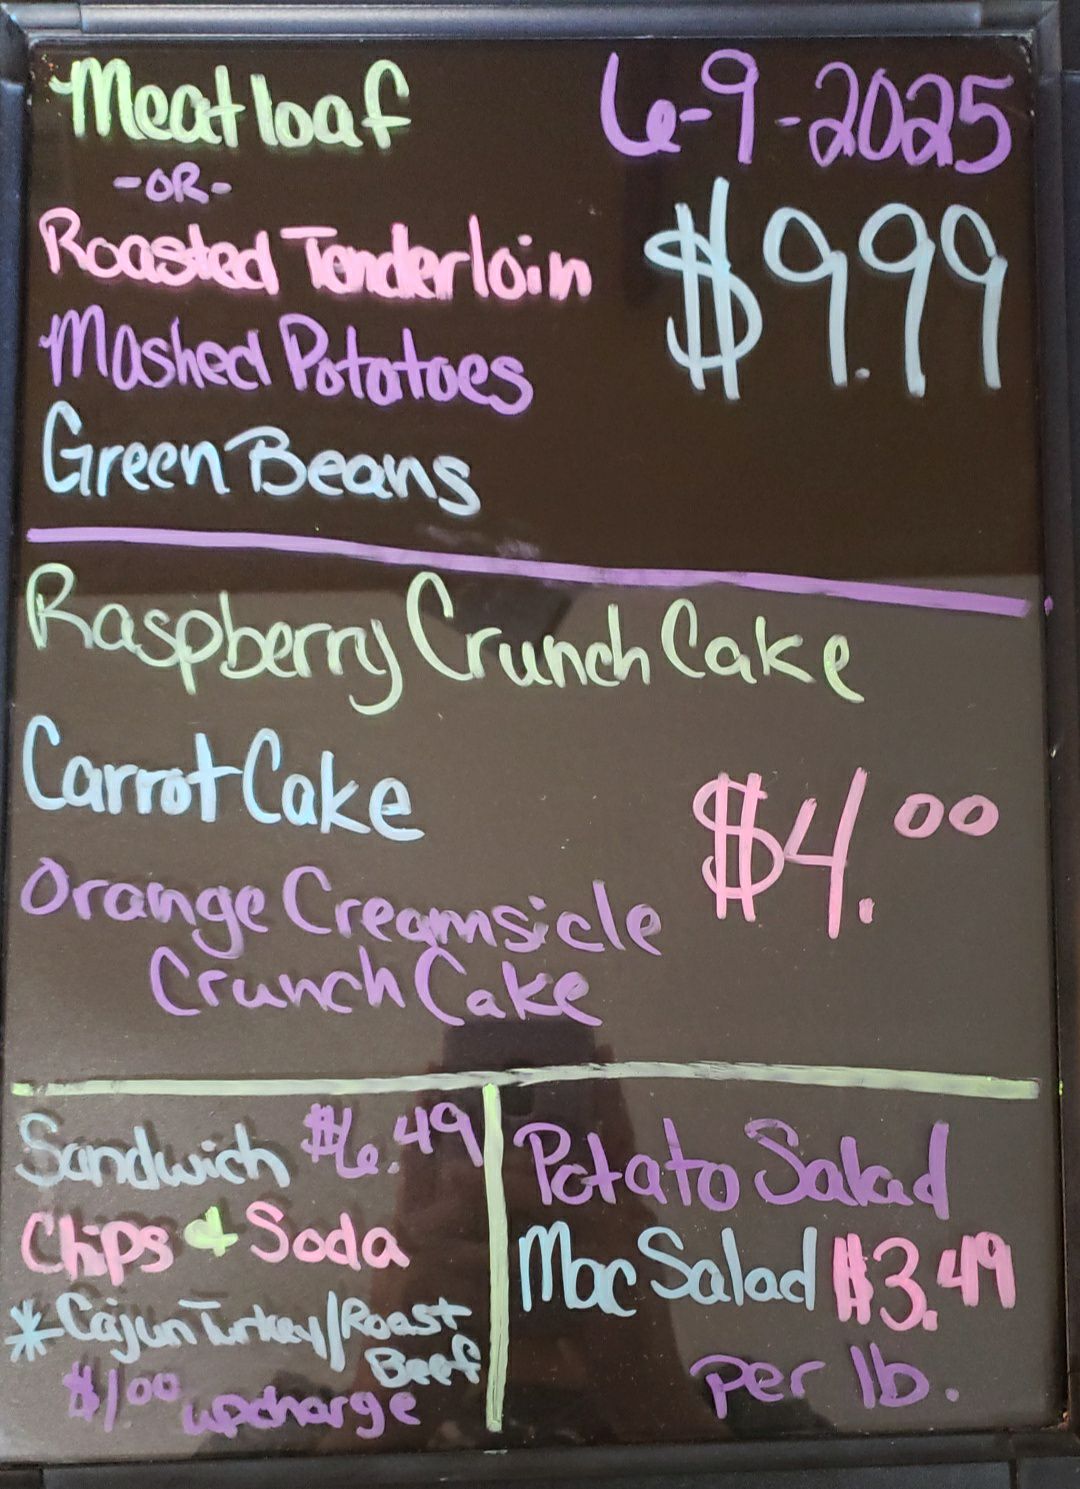 Meatloaf
6-9-2025
-OR-
Roasted Tenderloin
$9.99
Mashed Potatoes
Green Beans
Raspberry Crunch Cake
Carrot Cake
$4.00
Orange Creamsicle
Crunch Cake
Sandwich $6.49
Chips & Soda
*Cajun Turkey/Roast
Beef
$1.00 upcharge
Potato Salad
Mac Salad $3.49
per lb.